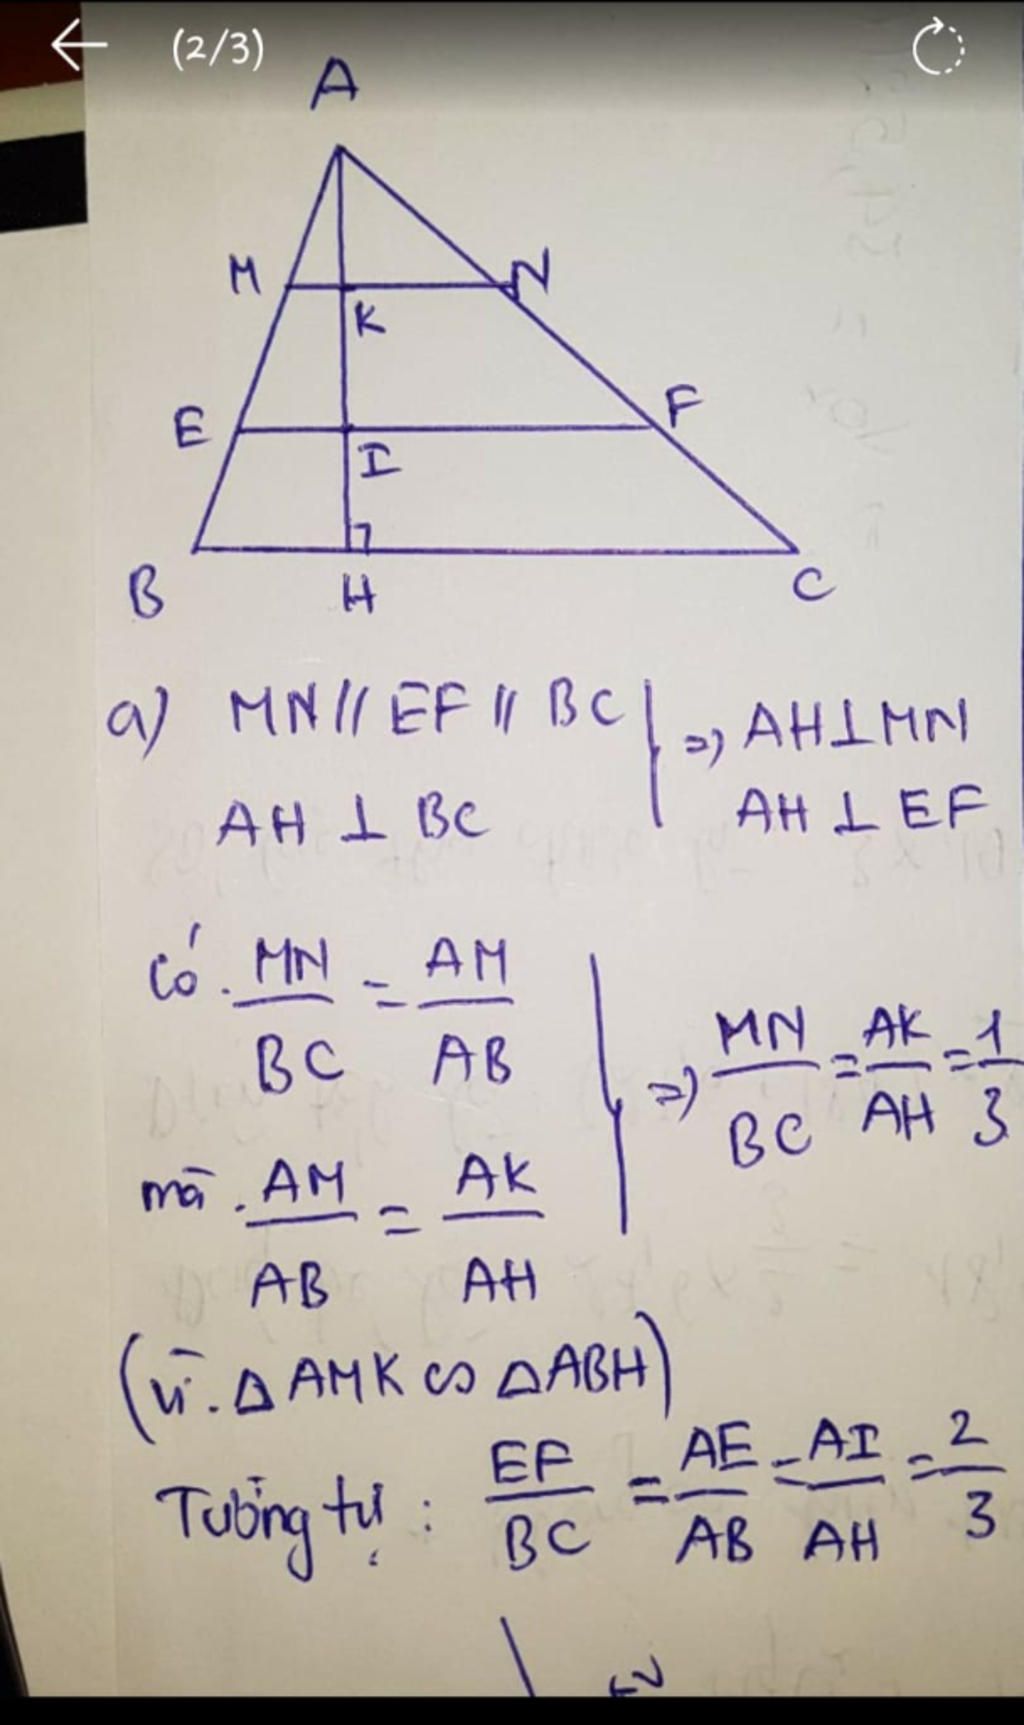 (2/3)
A
M N
K
E F
I
B H C
a) MN // EF // BC => AH⊥MN
AH ⊥ BC AH ⊥ EF
Có. MN/BC = AM/AB => MN/BC = AK/AH = 1/3
mà. AM/AB = AK/AH
(vì. Δ AMK ∽ ΔABH)
Tương tự: EF/BC = AE/AB = AI/AH = 2/3